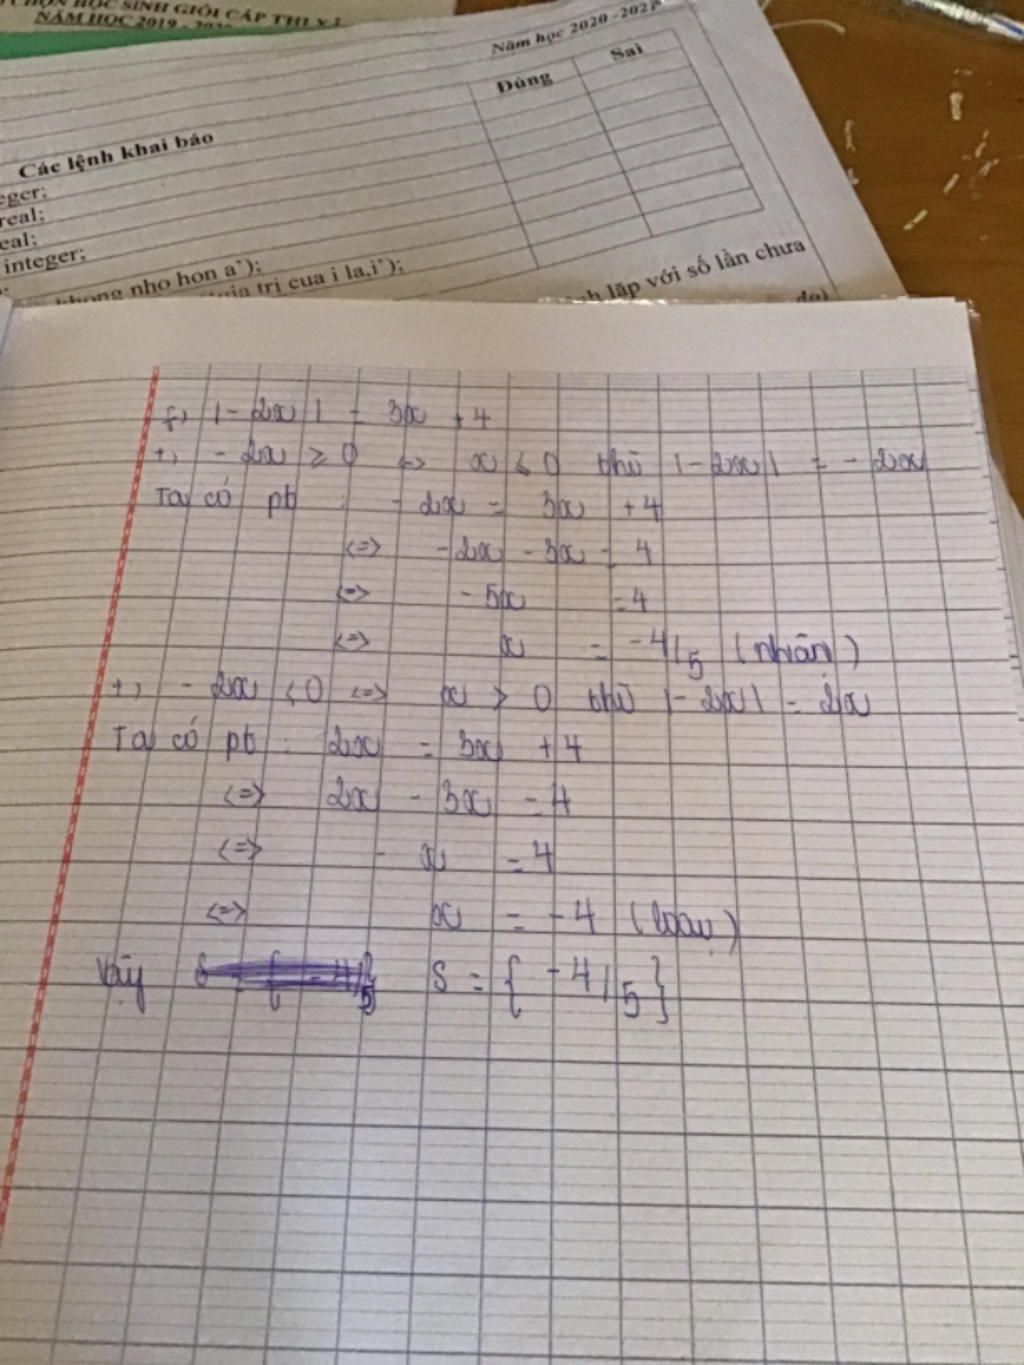 CHỌN HỌC SINH GIỎI CẤP THỊ XÃ
NĂM HỌC 2019 - 2020
Năm học 2020 -2021
Các lệnh khai báo Đúng Sai
eger;
real;
eal;
integer;
khong nho hon a');
gia tri cua i la,i');
lặp với số lần chưa
do)
f, |-2x| = 3x + 4
+, -2x ≥ 0 <=> x ≤ 0 thì |-2x| = -2x
Ta có pt : -2x = 3x + 4
<=> -2x - 3x = 4
<=> -5x = 4
<=> x = -4/5 (nhận)
+, -2x < 0 <=> x > 0 thì |-2x| = 2x
Ta có pt : 2x = 3x + 4
<=> 2x - 3x = 4
<=> - x = 4
<=> x = -4 (loại)
Vậy S = { -4/5 }